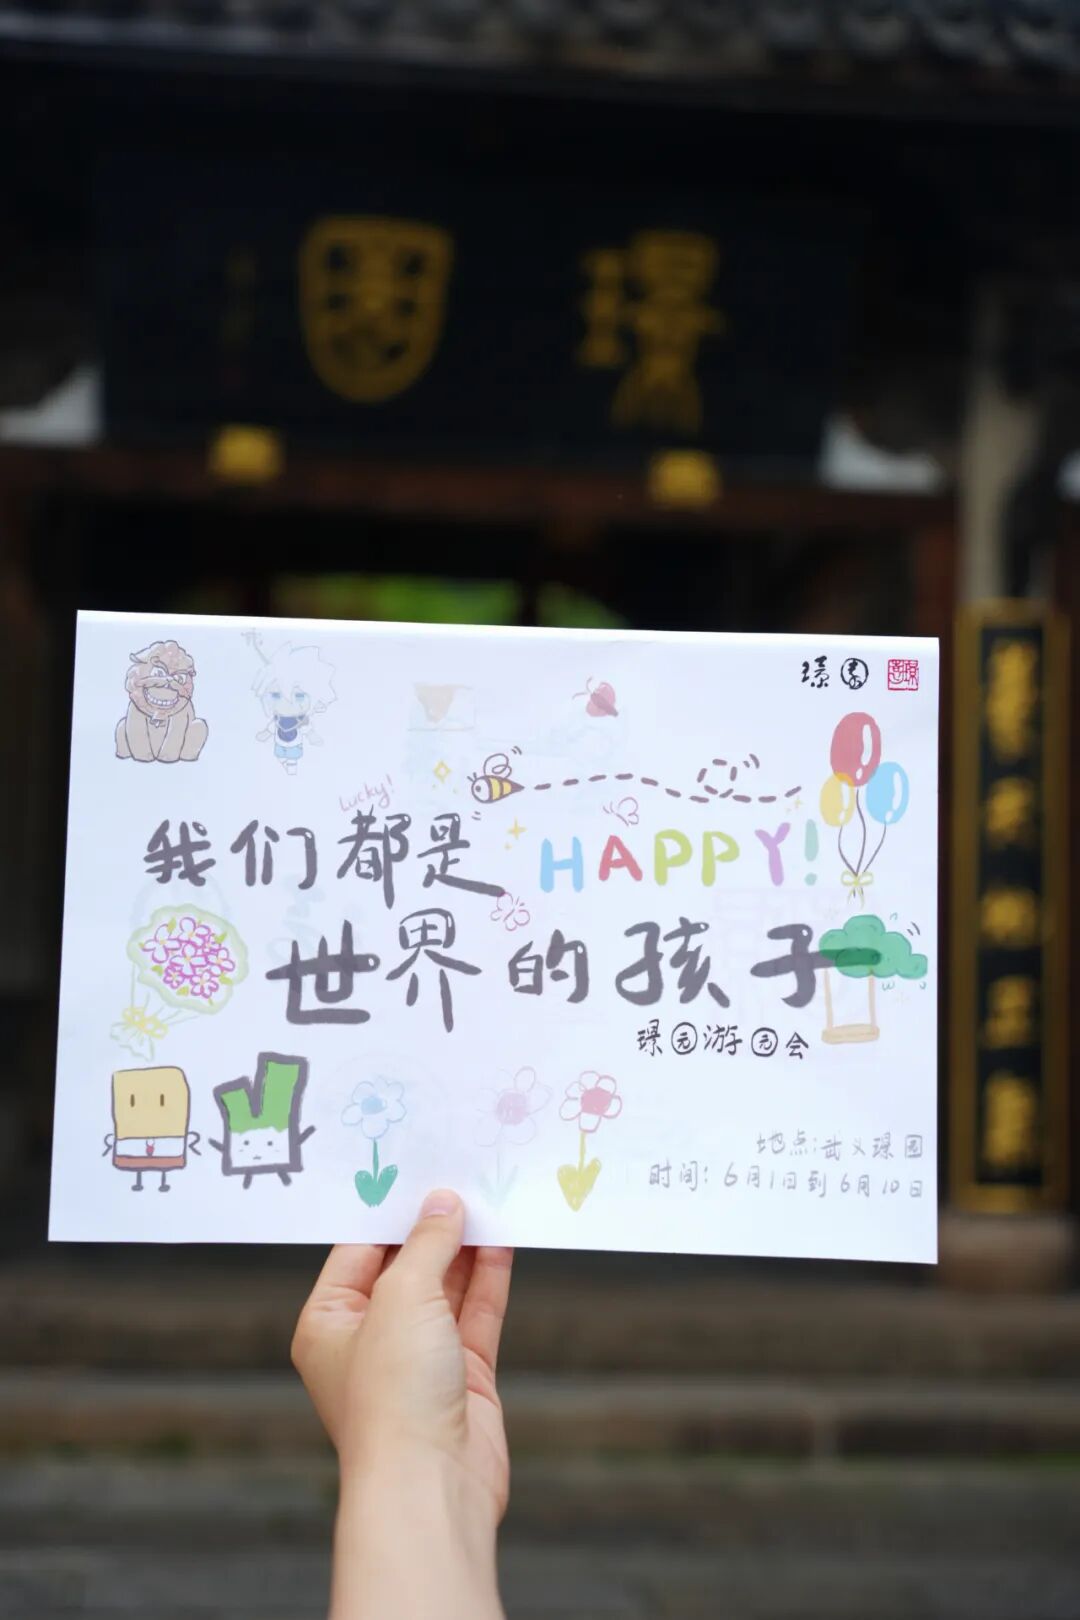 璟園
璟園
Lucky!
我们都是HAPPY!
世界的孩子
璟园游园会
地点:武义璟园
时间:6月1日到6月10日